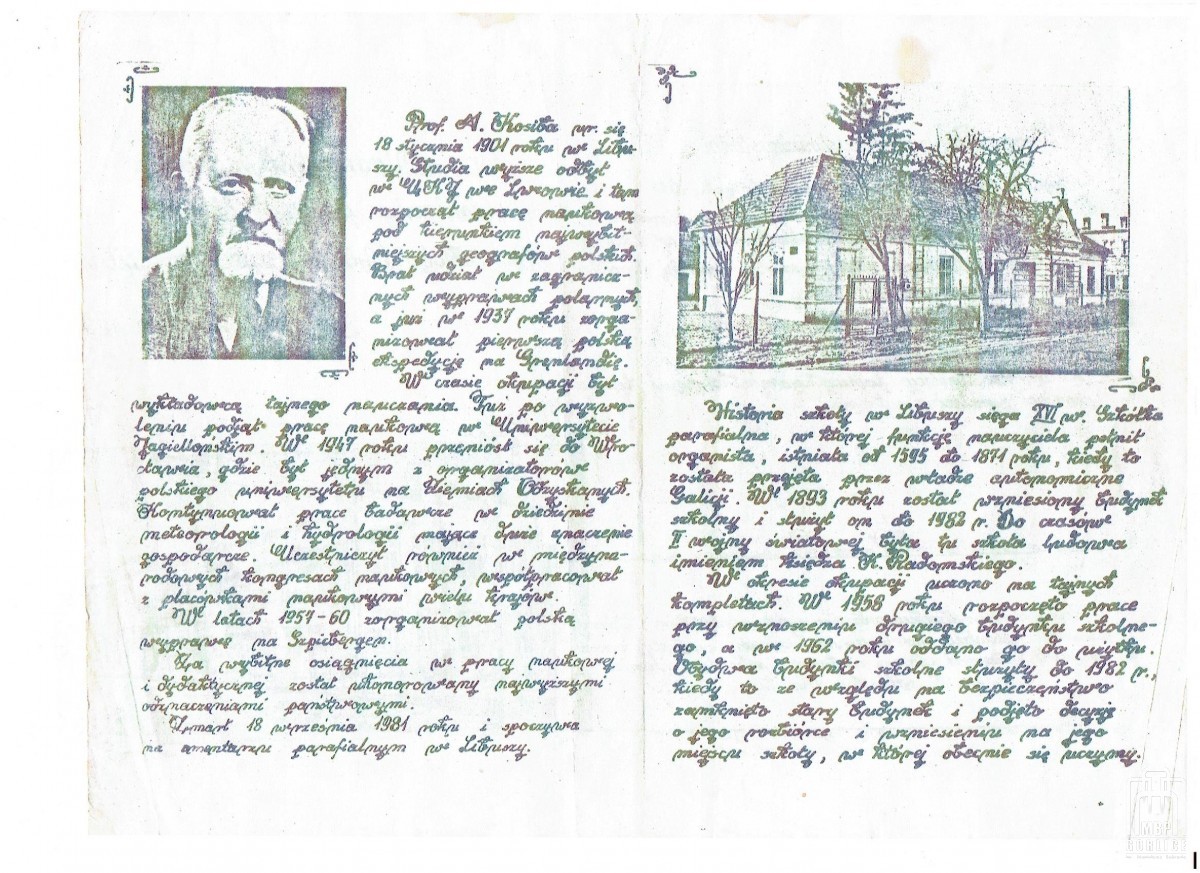 Prof. A. Kosiba ur. się
18 stycznia 1901 roku w Libu-
szy. Studia wyższe odbył
w UKJ we Lwowie i tam
rozpoczął pracę naukową
pod kierunkiem najwybit-
niejszych geografów polskich.
Brał udział w zagranicz-
nych wyprawach polarnych,
a już w 1937 roku zorga-
nizował pierwszą polską
ekspedycję na Grenlandię.
W czasie okupacji był
wykładowcą tajnego nauczania. Tuż po wyzwo-
leniu podjął pracę naukową w Uniwersytecie
Jagiellońskim. W 1947 roku przeniósł się do Wro-
cławia, gdzie był jednym z organizatorów
polskiego uniwersytetu na Ziemiach Odzyskanych.
Kontynuował prace badawcze w dziedzinie
meteorologii i hydrologii mające duże znaczenie
gospodarcze. Uczestniczył również w międzyna-
rodowych kongresach naukowych, współpracował
z placówkami naukowymi wielu krajów.
W latach 1957-60 zorganizował polską
wyprawę na Szpicbergen.
Za wybitne osiągnięcia w pracy naukowej
i dydaktycznej został uhonorowany najwyższymi
odznaczeniami państwowymi.
Zmarł 18 września 1981 roku i spoczywa
na cmentarzu parafialnym w Libuszy.
Historia szkoły w Libuszy sięga XVI w. Szkółka
parafialna, w której funkcję nauczyciela pełnił
organista, istniała od 1595 do 1871 roku, kiedy to
została przejęta przez władze autonomiczne
Galicji. W 1893 roku został wzniesiony budynek
szkolny i służył on do 1982 r. Do czasów
II wojny światowej była tu szkoła ludowa
imieniem księdza K. Radomskiego.
W okresie okupacji uczono na tajnych
kompletach. W 1958 roku rozpoczęto prace
przy wznoszeniu drugiego budynku szkolne-
go, a w 1962 roku oddano go do użytku.
Obydwa budynki szkolne służyły do 1982 r.,
kiedy to ze względu na bezpieczeństwo
zamknięto stary budynek i podjęto decyzję
o jego rozbiórce i wzniesieniu na jego
miejscu szkoły, w której obecnie się uczymy.
MBP
GORLICE